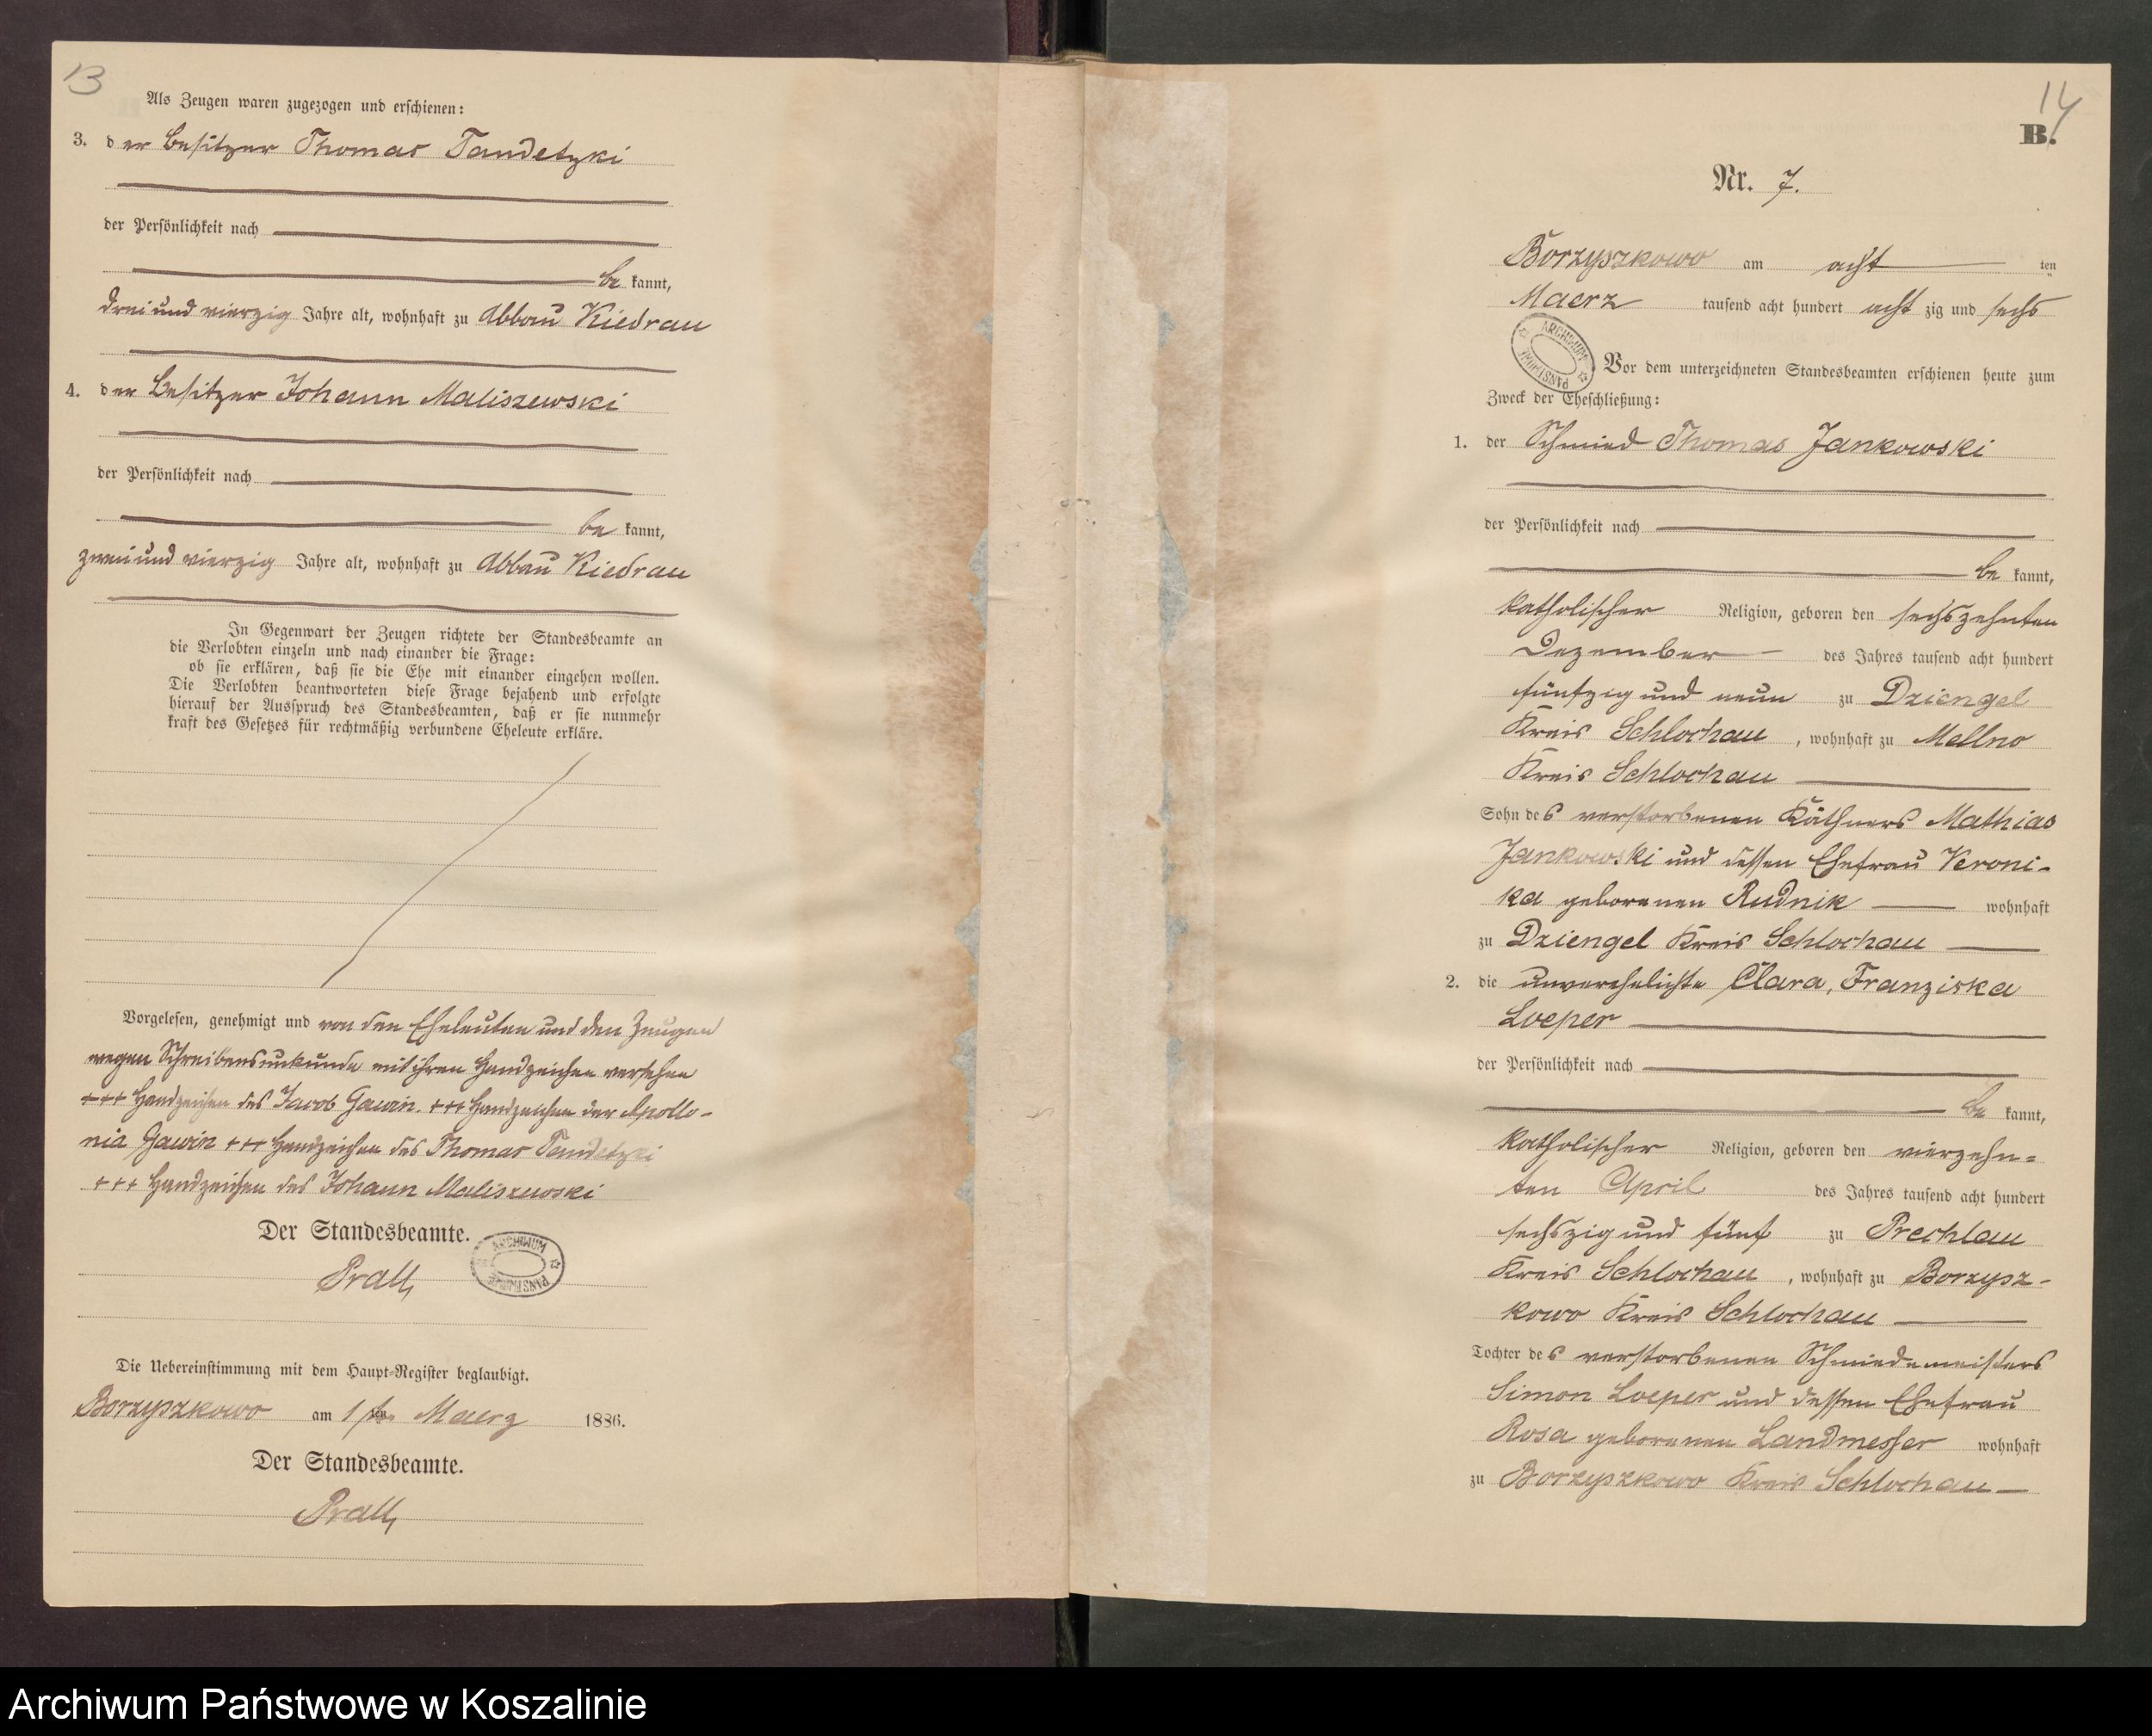 13
Als Zeugen waren zugezogen und erschienen:
3. der Besitzer Thomas Tandetzki
der Persönlichkeit nach
be kannt,
dreiundvierzig Jahre alt, wohnhaft zu Abbau Kiedrau
4. der Besitzer Johann Maliszewski
der Persönlichkeit nach
be kannt,
zweiundvierzig Jahre alt, wohnhaft zu Abbau Kiedrau
In Gegenwart der Zeugen richtete der Standesbeamte an
die Verlobten einzeln und nach einander die Frage:
ob sie erklären, daß sie die Ehe mit einander eingehen wollen.
Die Verlobten beantworteten diese Frage bejahend und erfolgte
hierauf der Ausspruch des Standesbeamten, daß er sie nunmehr
kraft des Gesetzes für rechtmäßig verbundene Eheleute erkläre.
Vorgelesen, genehmigt und von den Eheleuten und den Zeugen
wegen Schreibensunkunde mit ihren Handzeichen versehen
+++ Handzeichen des Jacob Gawin. +++ Handzeichen der Apollo-
nia Gawin +++ Handzeichen des Thomas Tandetzki
+++ Handzeichen des Johann Maliszewski
Der Standesbeamte.
ARCHIWUM PAŃSTWOWE
Prall
Die Uebereinstimmung mit dem Haupt-Register beglaubigt.
Borzyszkowo am 1ten Maerz 1886.
Der Standesbeamte.
Prall
14
B.
Nr. 7.
Borzyszkowo am acht ten
Maerz tausend acht hundert acht zig und sechs
ARCHIWUM PAŃSTWOWE
Vor dem unterzeichneten Standesbeamten erschienen heute zum
Zweck der Eheschließung:
1. der Schmied Thomas Jankowski
der Persönlichkeit nach
be kannt,
katholischer Religion, geboren den sechszehnten
Dezember des Jahres tausend acht hundert
fünfzig und neun zu Dziengel
Kreis Schlochau, wohnhaft zu Mellno
Kreis Schlochau
Sohn des verstorbenen Käthners Mathias
Jankowski und dessen Ehefrau Veroni-
ka geborenen Rudnik wohnhaft
zu Dziengel Kreis Schlochau
2. die unverehelichte Clara, Franziska
Loeper
der Persönlichkeit nach
be kannt,
katholischer Religion, geboren den vierzehn=
ten April des Jahres tausend acht hundert
sechszig und fünf zu Prechlau
Kreis Schlochau, wohnhaft zu Borzysz-
kowo Kreis Schlochau
Tochter des verstorbenen Schmiedemeisters
Simon Loeper und dessen Ehefrau
Rosa geborenen Landmesser wohnhaft
zu Borzyszkowo Kreis Schlochau
Archiwum Państwowe w Koszalinie